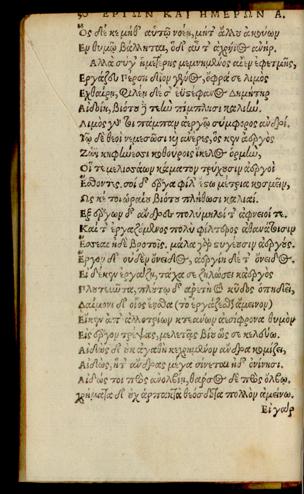 ΕΡΓΩΝ ΚΑΙ ΗΜΕΡΩΝ Α.
Ὃς δέ κε μήθ᾽ αὑτῷ νοέῃ, μήτ᾽ ἄλλου ἀκούων
Ἐν θυμῷ βάλληται, ὅδ᾽ αὖτ᾽ ἀχρήϊος ἀνήρ.
Ἀλλὰ σύ γ᾽ ἡμετέρης μεμνημένος αἰὲν ἐφετμῆς,
Ἐργάζευ Πέρση δῖον γένος, ὄφρα σε λιμὸς
Ἐχθαίρῃ, φιλέῃ δέ σ᾽ ἐϋστέφανος Δημήτηρ
Αἰδοίη, βιότου δὲ τεὴν πιμπλῇσι καλιήν.
Λιμὸς γάρ τοι πάμπαν ἀεργῷ σύμφορος ἀνδρί.
Τῷ δὲ θεοὶ νεμεσῶσι καὶ ἀνέρες, ὅς κεν ἀεργὸς
Ζώῃ, κηφήνεσσι κοθούροις ἴκελος ὁρμὴν,
Οἵ τε μελισσάων κάματον τρύχουσιν ἀεργοὶ
Ἔσθοντες. σοὶ δ᾽ ἔργα φίλ᾽ ἔστω μέτρια κοσμεῖν,
Ὥς κέ τοι ὡραίου βιότου πλήθωσι καλιαί.
Ἐξ ἔργων δ᾽ ἄνδρες πολύμηλοί τ᾽ ἀφνειοί τε.
Καί τ᾽ ἐργαζόμενος πολὺ φίλτερος ἀθανάτοισιν
Ἔσσεαι ἠδὲ βροτοῖς. μάλα γὰρ στυγέουσιν ἀεργούς.
Ἔργον δ᾽ οὐδὲν ὄνειδος, ἀεργίη δέ τ᾽ ὄνειδος.
Εἰ δέ κεν ἐργάζῃ, τάχα σε ζηλώσει καὶ ἀεργὸς
Πλουτεῦντα, πλούτῳ δ᾽ ἀρετὴ καὶ κῦδος ὀπηδεῖ,
Δαίμονι δ᾽ οἷος ἔησθα (τὸ ἐργάζεσθαι ἄμεινον)
Εἴ κεν ἀπ᾽ ἀλλοτρίων κτεάνων ἀεσίφρονα θυμὸν
Εἰς ἔργον τρέψας, μελετᾷς βίου ὥς σε κελεύω.
Αἰδὼς δ᾽ οὐκ ἀγαθὴ κεχρημένον ἄνδρα κομίζει,
Αἰδὼς, ἥτ᾽ ἄνδρας μέγα σίνεται ἠδ᾽ ὀνίνησι.
Αἰδώς τοι πρὸς ἀνολβίῃ, θάρσος δὲ πρὸς ὄλβῳ.
Χρήματα δ᾽ οὐχ ἁρπακτὰ, θεόσδοτα πολλὸν ἀμείνω.
Εἰ γάρ